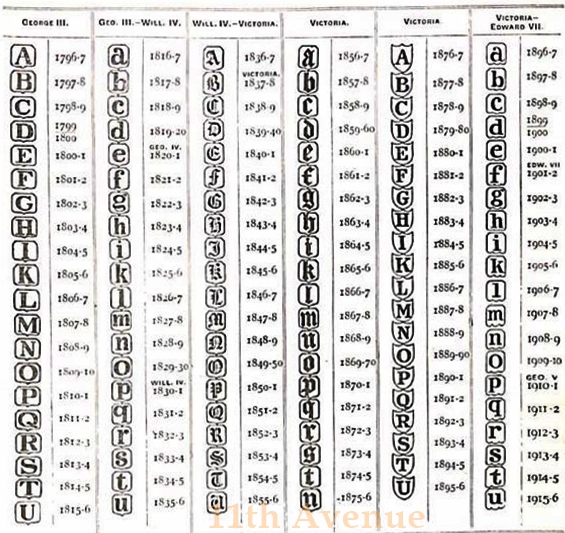 GEORGE III.
A 1796-7
B 1797-8
C 1798-9
D 1799
1800
E 1800-1
F 1801-2
G 1802-3
H 1803-4
I 1804-5
K 1805-6
L 1806-7
M 1807-8
N 1808-9
O 1809-10
P 1810-1
Q 1811-2
R 1812-3
S 1813-4
T 1814-5
U 1815-6
GEO. III.-WILL. IV.
a 1816-7
b 1817-8
c 1818-9
d 1819-20
GEO. IV.
e 1820-1
f 1821-2
g 1822-3
h 1823-4
i 1824-5
k 1825-6
l 1826-7
m 1827-8
n 1828-9
o 1829-30
WILL. IV.
p 1830-1
q 1831-2
r 1832-3
s 1833-4
t 1834-5
u 1835-6
WILL. IV.-VICTORIA.
A 1836-7
VICTORIA.
B 1837-8
C 1838-9
D 1839-40
E 1840-1
F 1841-2
G 1842-3
H 1843-4
I 1844-5
K 1845-6
L 1846-7
M 1847-8
N 1848-9
O 1849-50
P 1850-1
Q 1851-2
R 1852-3
S 1853-4
T 1854-5
U 1855-6
VICTORIA.
a 1856-7
b 1857-8
c 1858-9
d 1859-60
e 1860-1
f 1861-2
g 1862-3
h 1863-4
i 1864-5
k 1865-6
l 1866-7
m 1867-8
n 1868-9
o 1869-70
p 1870-1
q 1871-2
r 1872-3
s 1873-4
t 1874-5
u 1875-6
VICTORIA
A 1876-7
B 1877-8
C 1878-9
D 1879-80
E 1880-1
F 1881-2
G 1882-3
H 1883-4
I 1884-5
K 1885-6
L 1886-7
M 1887-8
N 1888-9
O 1889-90
P 1890-1
Q 1891-2
R 1892-3
S 1893-4
T 1894-5
U 1895-6
VICTORIA-
EDWARD VII.
a 1896-7
b 1897-8
c 1898-9
d 1899
1900
e 1900-1
EDW. VII
f 1901-2
g 1902-3
h 1903-4
i 1904-5
k 1905-6
l 1906-7
m 1907-8
n 1908-9
o 1909-10
GEO. V
p 1910-1
q 1911-2
r 1912-3
s 1913-4
t 1914-5
u 1915-6
11th Avenue